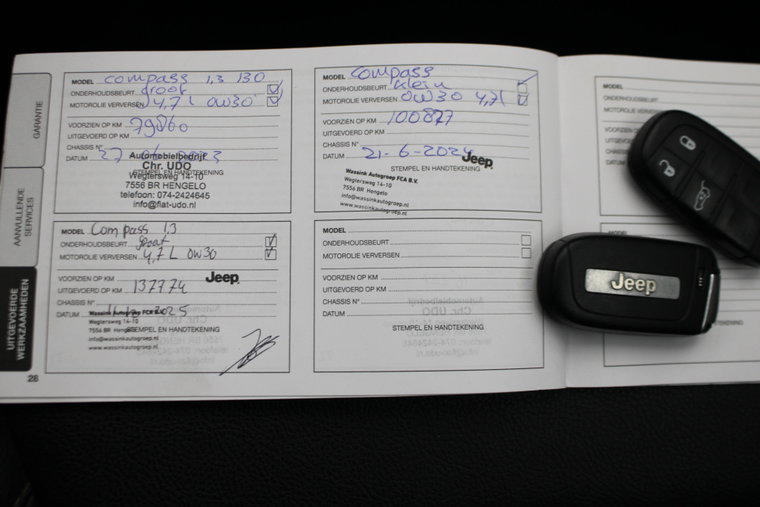 GARANTIE
AANVULLENDE SERVICES
UITGEVOERDE WERKZAAMHEDEN
28
MODEL compass 1,3 130
ONDERHOUDSBEURT groot
MOTOROLIE VERVERSEN 4,7 L 0W30
VOORZIEN OP KM
UITGEVOERD OP KM 79860
CHASSIS N°
DATUM 27
Automobielbedrijf
Chr. UDO
STEMPEL EN HANDTEKENING
Wegtersweg 14-10
7556 BR HENGELO
telefoon: 074-2424645
info@fiat-udo.nl
MODEL Compass
ONDERHOUDSBEURT klein
MOTOROLIE VERVERSEN 0W30 4,7l
VOORZIEN OP KM
UITGEVOERD OP KM 100877
CHASSIS N°
DATUM 21-6-2024
Jeep
STEMPEL EN HANDTEKENING
Wassink Autogroep FCA B.V.
Wegtersweg 14-10
7556 BR Hengelo
info@wassinkautogroep.nl
www.wassinkautogroep.nl
MODEL Compass 1,3
ONDERHOUDSBEURT groot
MOTOROLIE VERVERSEN 4,7 L 0W30
VOORZIEN OP KM
UITGEVOERD OP KM 137774
Jeep
CHASSIS N°
DATUM 2025
Wassink Autogroep FCA B.V.
Wegtersweg 14-10
7556 BR Hengelo
STEMPEL EN HANDTEKENING
info@wassinkautogroep.nl
www.wassinkautogroep.nl
MODEL
ONDERHOUDSBEURT
MOTOROLIE VERVERSEN
VOORZIEN OP KM
UITGEVOERD OP KM
CHASSIS N°
DATUM
STEMPEL EN HANDTEKENING
MODEL
ONDERHOUDSBEURT
MOTOROLIE
VOORZIEN
UITGEVOERD
CHASSIS
DATUM
Jeep